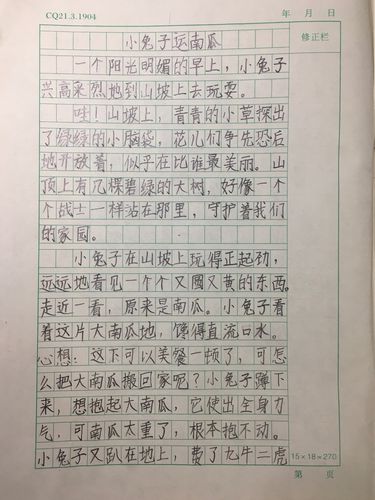 CQ21.3.1904
年 月 日
修正栏
小兔子运南瓜
一个阳光明媚的早上，小兔子
兴高采烈地到山坡上去玩耍。
哇！山坡上，青青的小草探出
了绿绿的小脑袋，花儿们争先恐后
地开放着，似乎在比谁最美丽。山
顶上有几棵碧绿的大树，好像一个
个战士一样站在那里，守护着我们
的家园。
小兔子在山坡上玩得正起劲，
远远地看见一个个又圆又黄的东西。
走近一看，原来是南瓜。小兔子看
着这片大南瓜地，馋得直流口水。
心想：这下可以美餐一顿了，可怎
么把大南瓜搬回家呢？小兔子蹲下
来，想抱起大南瓜，它使出全身力
气，可南瓜太重了，根本抱不动。
小兔子又趴在地上，费了九牛二虎
15×18=270
第 页